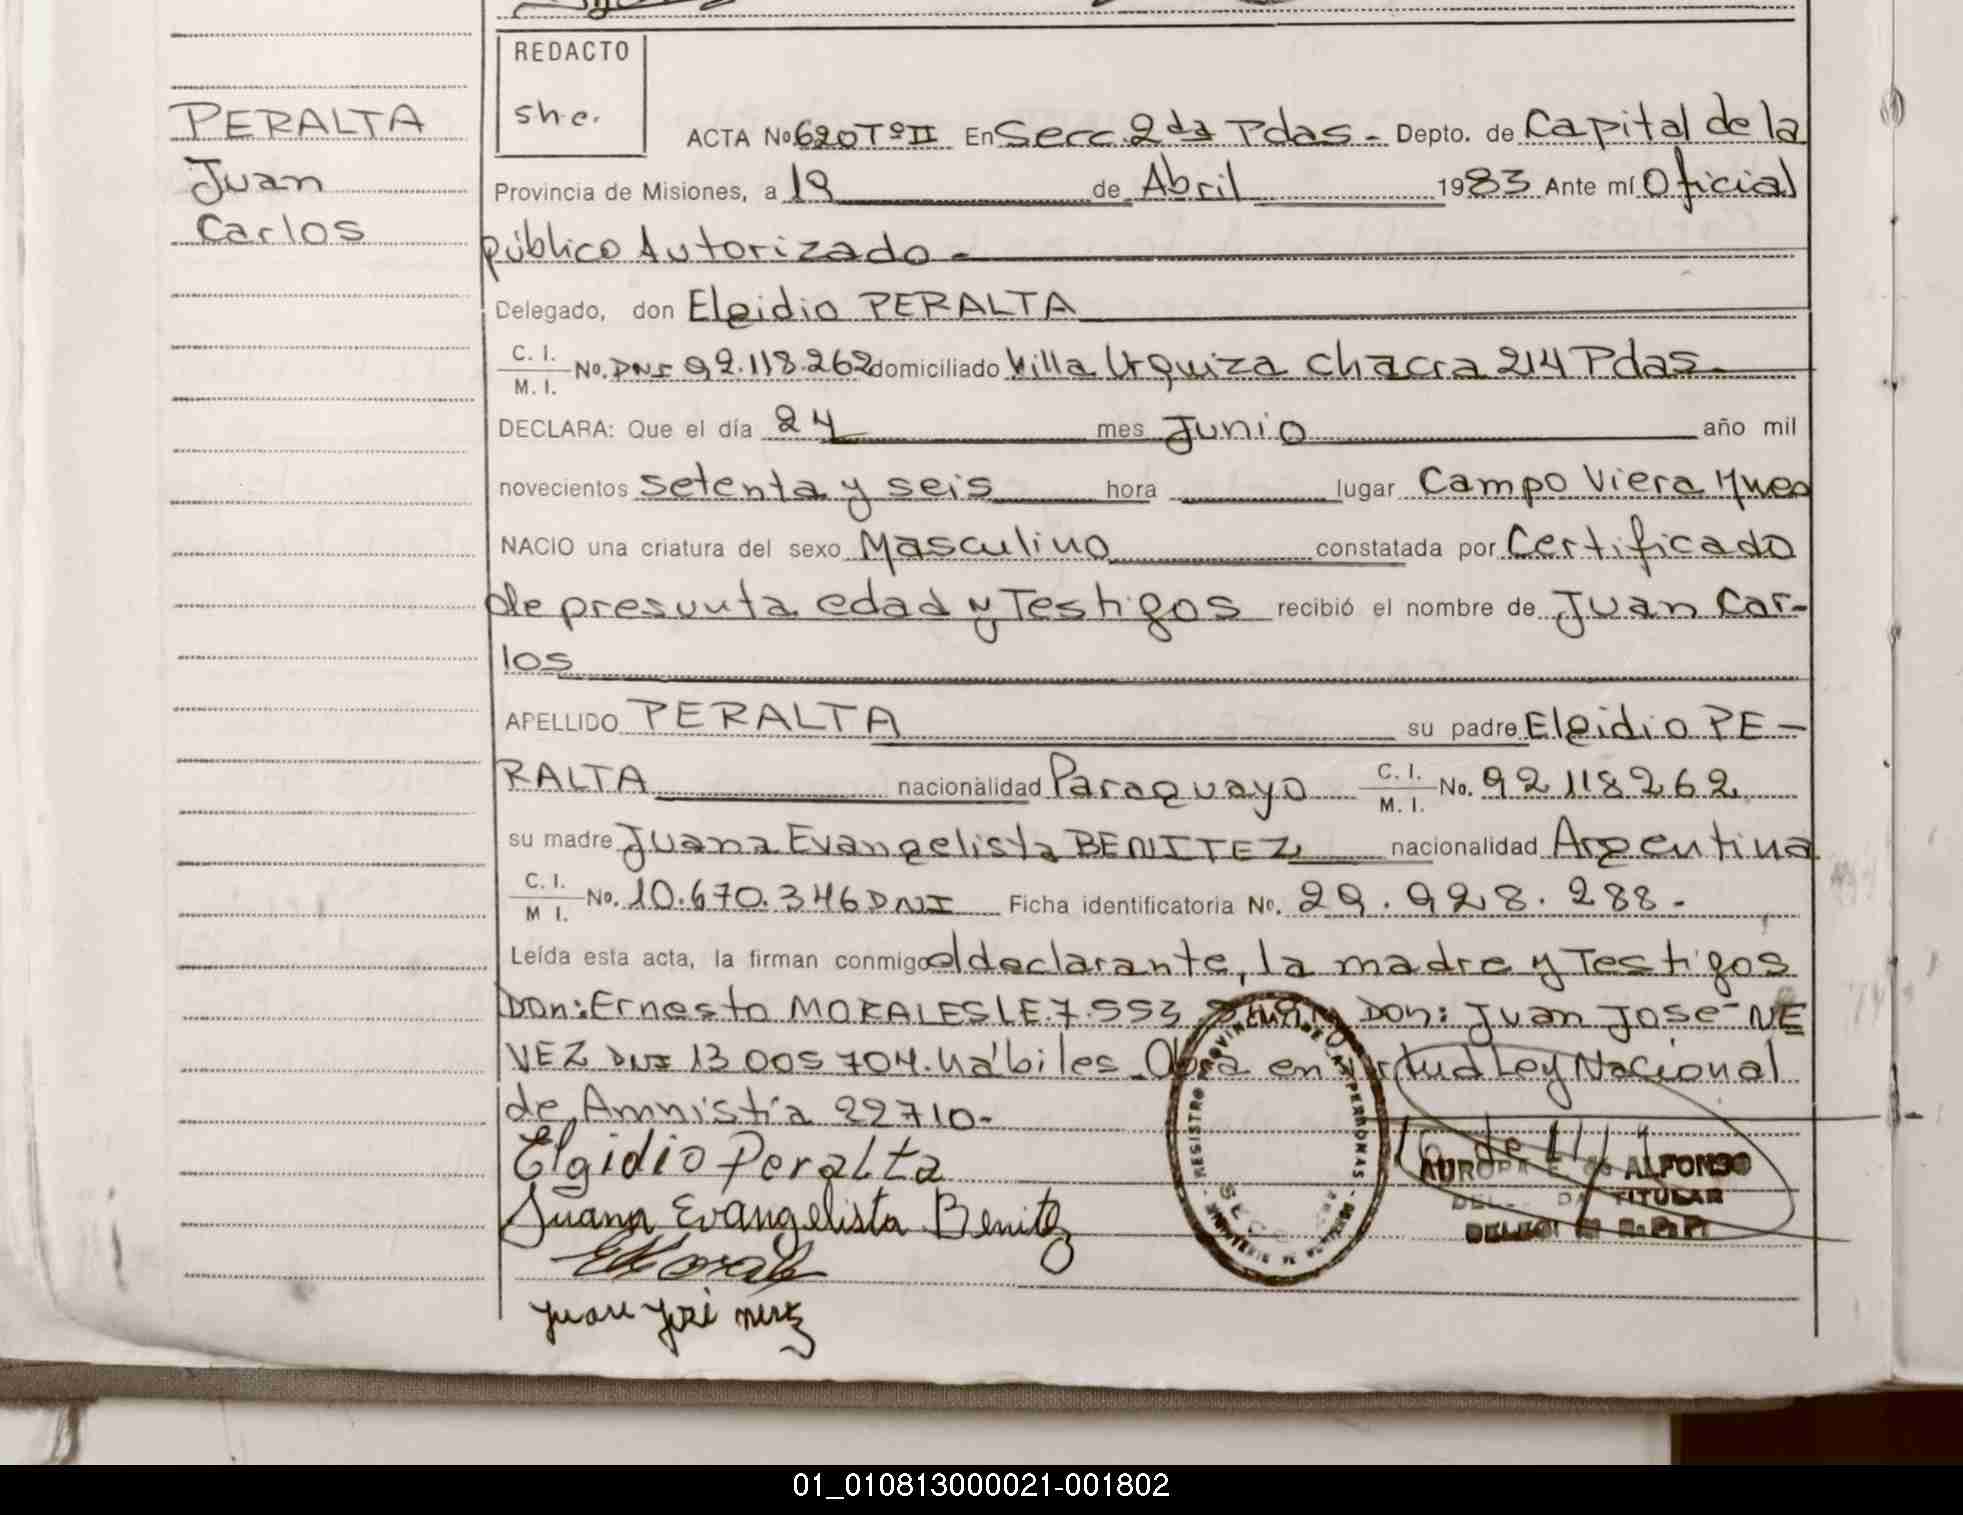 REDACTO
she.
PERALTA
Juan
Carlos
ACTA No 620 Tº II En Secc. 2da Pdas - Depto. de Capital de la
Provincia de Misiones, a 19 de Abril 1983 Ante mí Oficial
público Autorizado -
Delegado, don Elgidio PERALTA
C. I. / M. I. No. DNI 92.118.262 domiciliado Villa Urquiza chacra 214 Pdas.
DECLARA: Que el día 24 mes Junio año mil
novecientos setenta y seis hora lugar Campo Viera Mnes
NACIO una criatura del sexo Masculino constatada por Certificado
de presunta edad y Testigos recibió el nombre de Juan Car-
los
APELLIDO PERALTA su padre Elgidio PE-
RALTA nacionalidad Paraguayo C. I. / M. I. No. 92 118262
su madre Juana Evangelista BENITEZ nacionalidad Argentina
C. I. / M I. No. 10.670.346 DNI Ficha identificatoria No. 29.928.288-
Leída esta acta, la firman conmigo el declarante, la madre y Testigos
Don: Ernesto MORALES LE. 7.553 Don: Juan José NE
VEZ DNI 13 005 704. hábiles. Obra en virtud Ley Nacional
de Amnistía 22710-
Elgidio Peralta
Juana Evangelista Benitez
EMorales
Juan José nevez
REGISTRO PROVINCIAL DE LAS PERSONAS
AURORA E. de ALFONSO
TITULAR
01_010813000021-001802